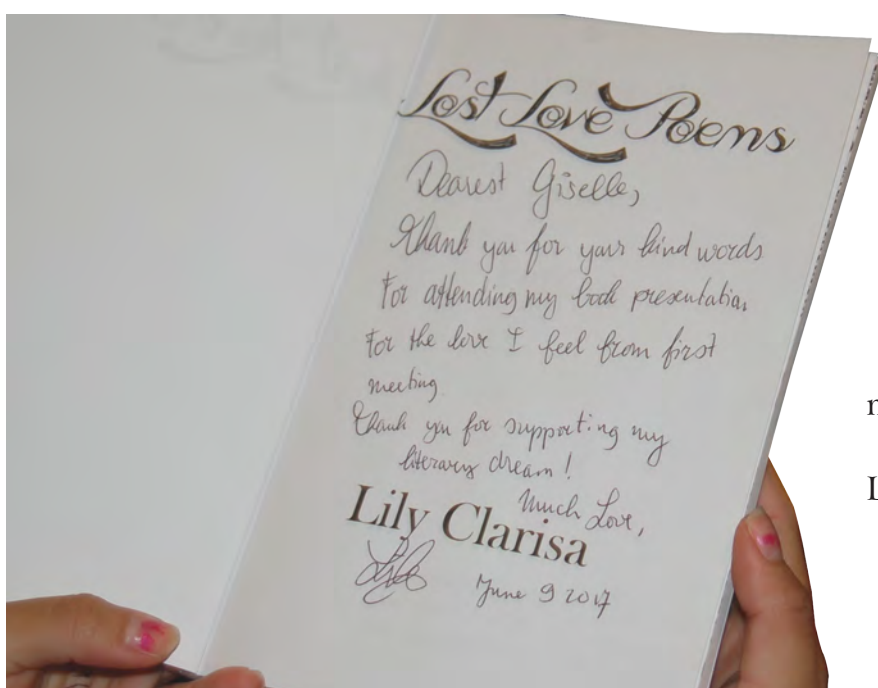 Lost Love Poems
Dearest Giselle,
Thank you for your kind words
For attending my book presentation
For the love I feel from first
meeting.
Thank you for supporting my
literary dream!
Much Love,
Lily Clarisa
June 9 2017